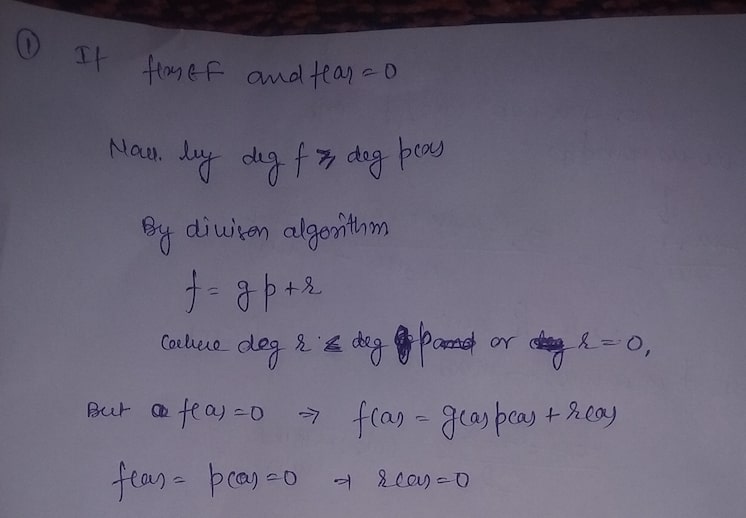 ① If f(x) ∈ F and f(a) = 0
Now by deg f ≥ deg p(a)
By divison algorithm
f = g p + r
where deg r ≤ deg p or r = 0,
But f(a) = 0 ⇒ f(a) = g(a) p(a) + r(a)
f(a) = p(a) = 0 ⇒ r(a) = 0